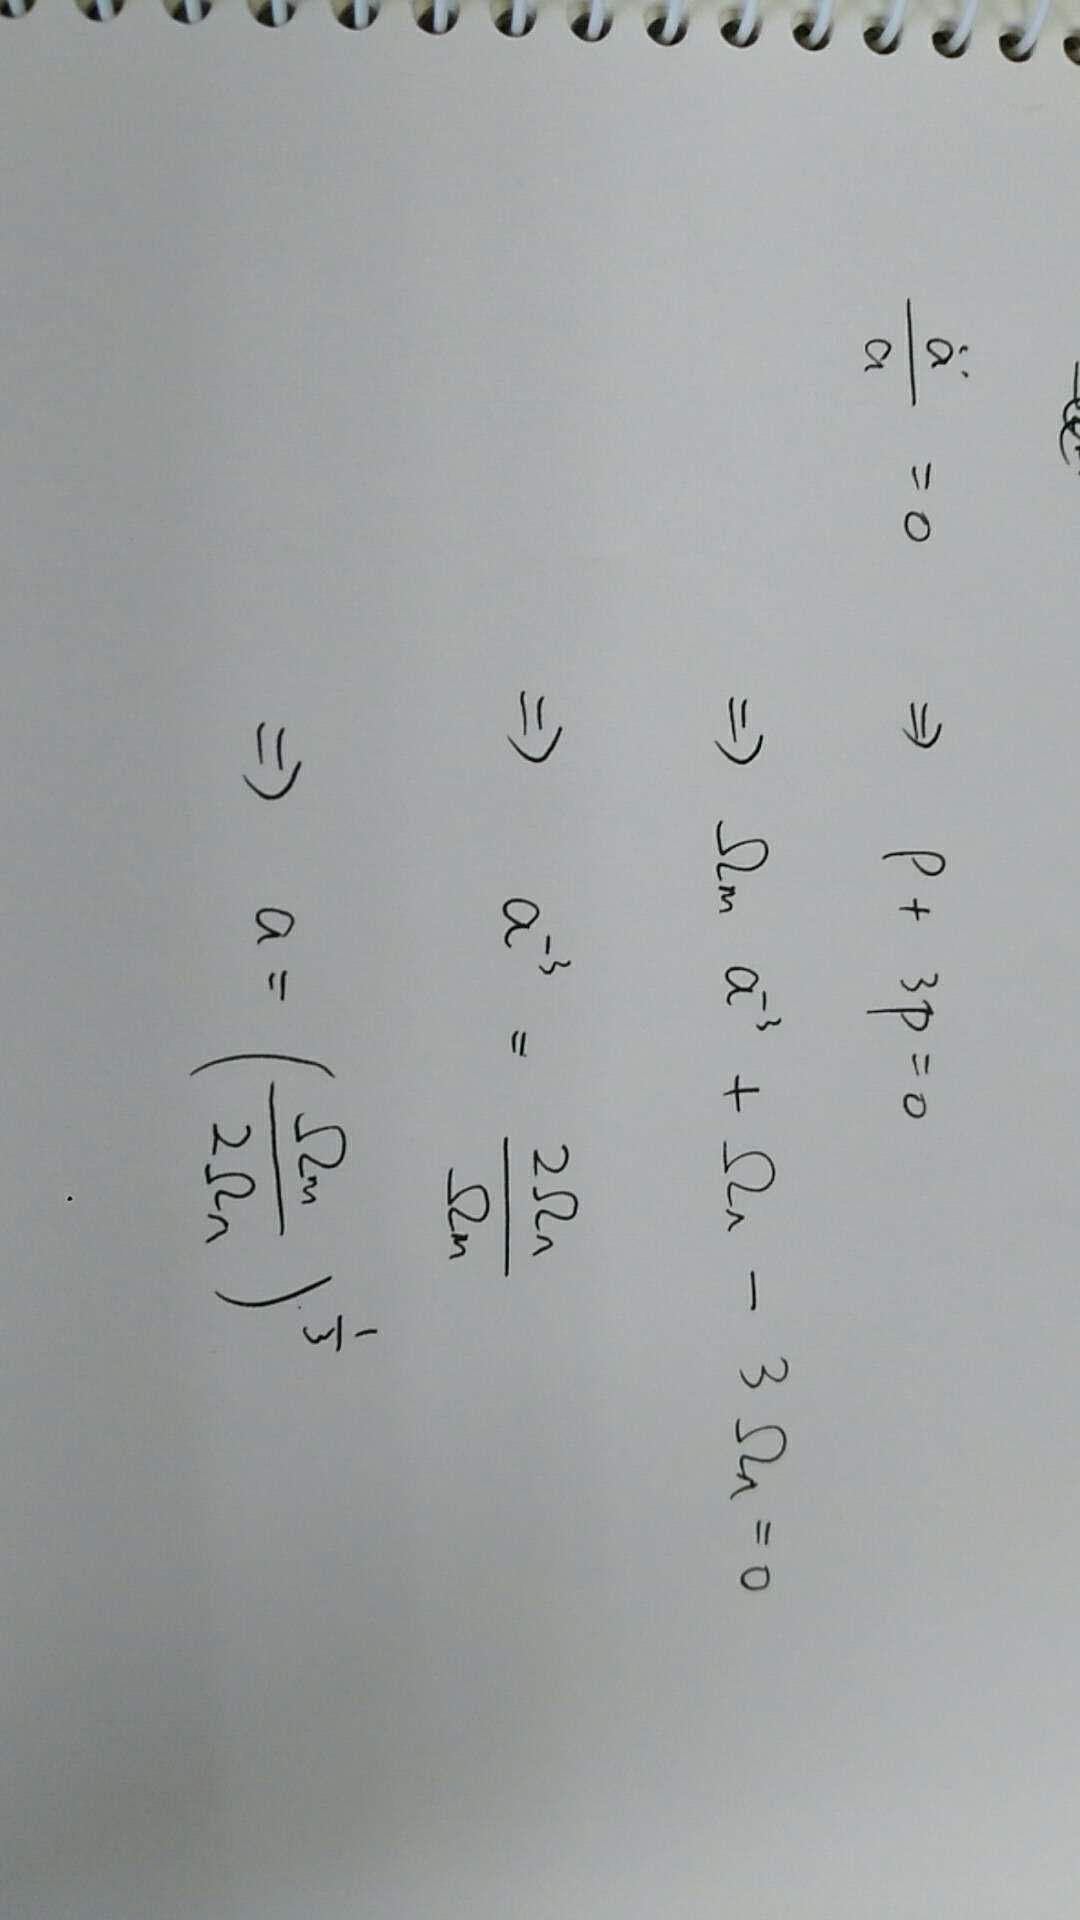 ä/a = 0 ⇒ ρ + 3p = 0
⇒ Ωm a⁻³ + ΩΛ − 3 ΩΛ = 0
⇒ a⁻³ = 2ΩΛ/Ωm
⇒ a = (Ωm/2ΩΛ)^(1/3)